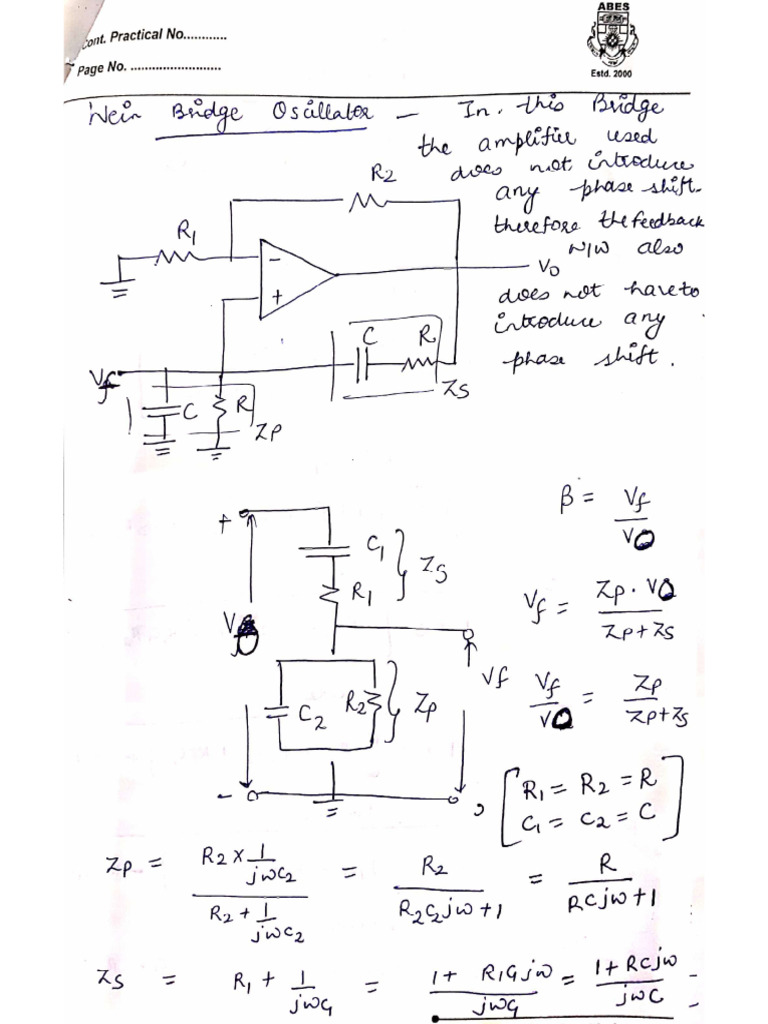 ABES
Estd. 2000
Cont. Practical No............
Page No. .........................
Wein Bridge Oscillator — In this Bridge
the amplifier used
does not introduce
any phase shift.
therefore the feedback
N/W also
does not have to
introduce any
phase shift.
R2
R1
−
+
Vo
C R
Zs
Vf
C R
Zp
β = Vf / Vo
+
C1
R1
Zs
Vo
Vf = Zp · Vo / Zp + Zs
Vf
Vf / Vo = Zp / Zp + Zs
C2 R2
Zp
−
, [ R1 = R2 = R
C1 = C2 = C ]
Zp = R2 × 1/jωC2 / R2 + 1/jωC2 = R2 / R2C2jω + 1 = R / RCjω + 1
Zs = R1 + 1/jωC1 = 1 + R1C1jω / jωC1 = 1 + RCjω / jωC